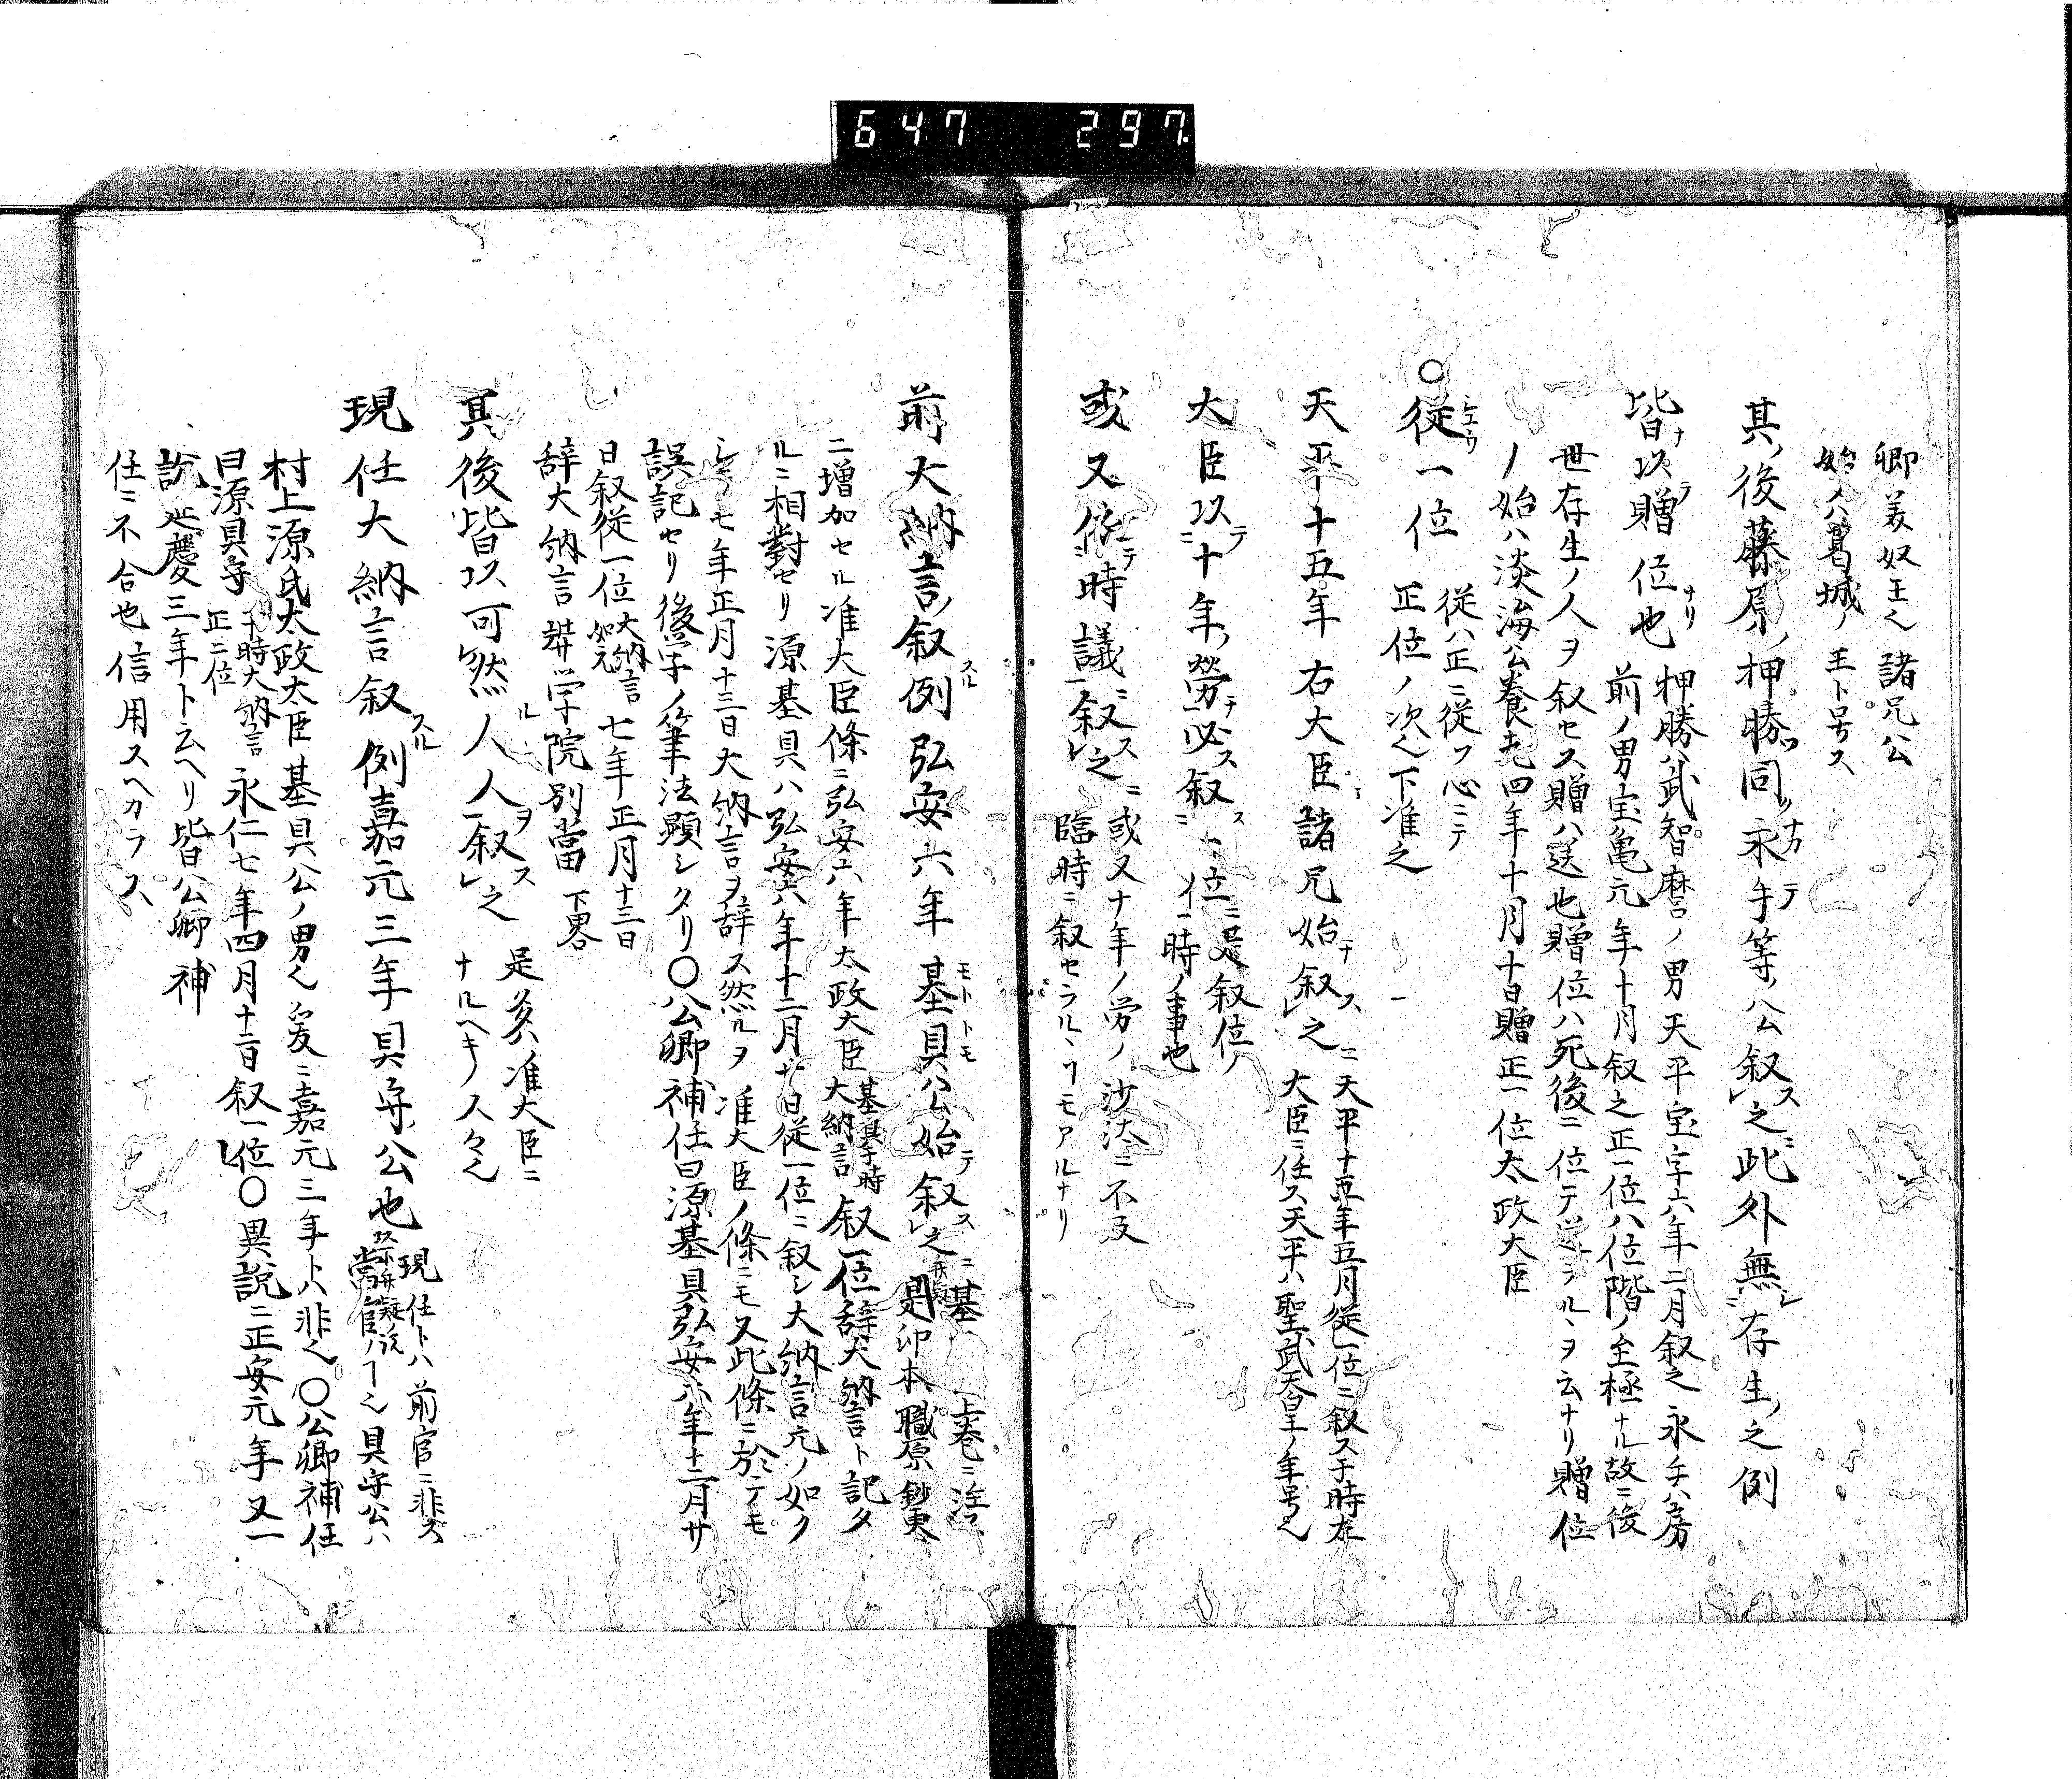 647 297
卿美奴王ノ諸兄公
始ハ葛城ノ王ト号ス
其ノ後藤原ノ押勝同ク永手等ノ公叙スレ之ニ此外無レ存生ノ之例
皆ナ以テ贈位也ナリ
押勝ハ武智麿ノ男天平宝字六年二月叙之永手ハ房
前ノ男宝亀元年十月叙之正一位ハ位階ノ至極ナル故ニ後
世存生ノ人ヲ叙セス贈ハ送也贈位ハ死後ニ位テ送ラルヽヲ云ナリ贈位
ノ始ハ淡海公養老四年十月十日贈正一位太政大臣
〇従一位
従ハ正ニ従フ心ニテ
正位ノ次也下准之
天平十五年右大臣諸兄始テ叙スレ之ニ
天平十五年五月従一位ニ叙ス于時右
大臣ニ任ス天平ハ聖武天皇ノ年号也
大臣以テ十年ノ労ヲ必ス叙ス一位ニ
是叙位ノ
一時ノ事也
或又依テ時議ニ叙スレ之ニ
或又十年ノ労ノ沙汰ニ不及
臨時ニ叙セラルヽヿモアルナリ
前大納言ノ叙スル例弘安六年基具公始テ叙スレ之ニ
基具 上巻ニ注ス
是印本職原鈔更
ニ増加セル准大臣條ニ弘安六年太政大臣基具于時大納言叙一位辞大納言ト記タ
ルニ相對セリ源基具ハ弘安六年十二月廿日従一位ニ叙シ大納言元ノ如ク
シテモ年正月十三日大納言ヲ辞ス然ルヲ准大臣ノ條ニモ又此條ニ於テモ
誤記セリ後学ノ筆法顕シタリ〇公卿補任曰源基具弘安六年十二月廿
日叙従一位大納言如元七年正月十三日
辞大納言奨学院別當下畧
其後皆以可レ然ル人人ヲ叙スレ之
是亦准大臣ニ
ナルヘキノ人々也
現任大納言叙スル例嘉元三年具守公也
現任トハ前官ニ非ス
當官ノヿ也具守公ハ
村上源氏太政大臣基具公ノ男也爰ニ嘉元三年トハ非也〇公卿補任
曰源具守于時大納言正二位永仁七年四月十二日叙一位〇異説ニ正安元年又一
説延慶三年ト云ヘリ皆公卿補
任ニ不合也信用スヘカラス